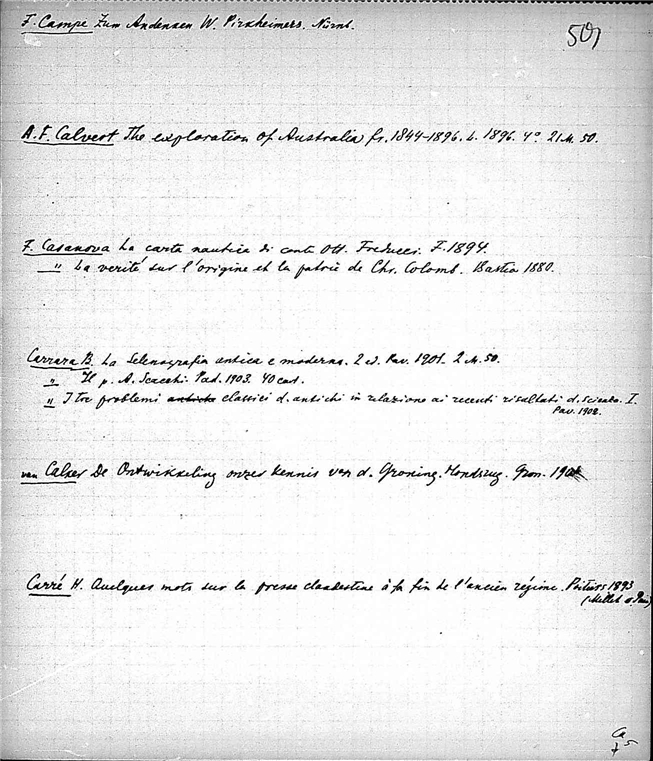 F. Campe Zum Andenken W. Pirkheimers. Nürnb.
501
A. F. Calvert The exploration of Australia fr. 1844-1896. L. 1896. 4º 21 M. 50.
F. Casanova La carta nautica di conte Ott. Freducci. F. 1894.
" La verité sur l'origine et la patrie de Chr. Colomb. Bastia 1880.
Carrara B. La Selenografia antica e moderna. 2 ed. Pav. 1901. 2 M. 50.
" Il p. A. Secchi. Pad. 1903. 40 cent.
" I tre problemi classici d. antichi in relazione ai recenti risultati d. scienza. I.
Pav. 1902.
van Calker De Ontwikkeling onzer kennis van d. Groning. Hondsrug. Gron. 1901
Carré H. Quelques mots sur la presse clandestine à la fin de l'ancien régime. Poitiers 1893
(Millet et Pain)
Ca
5